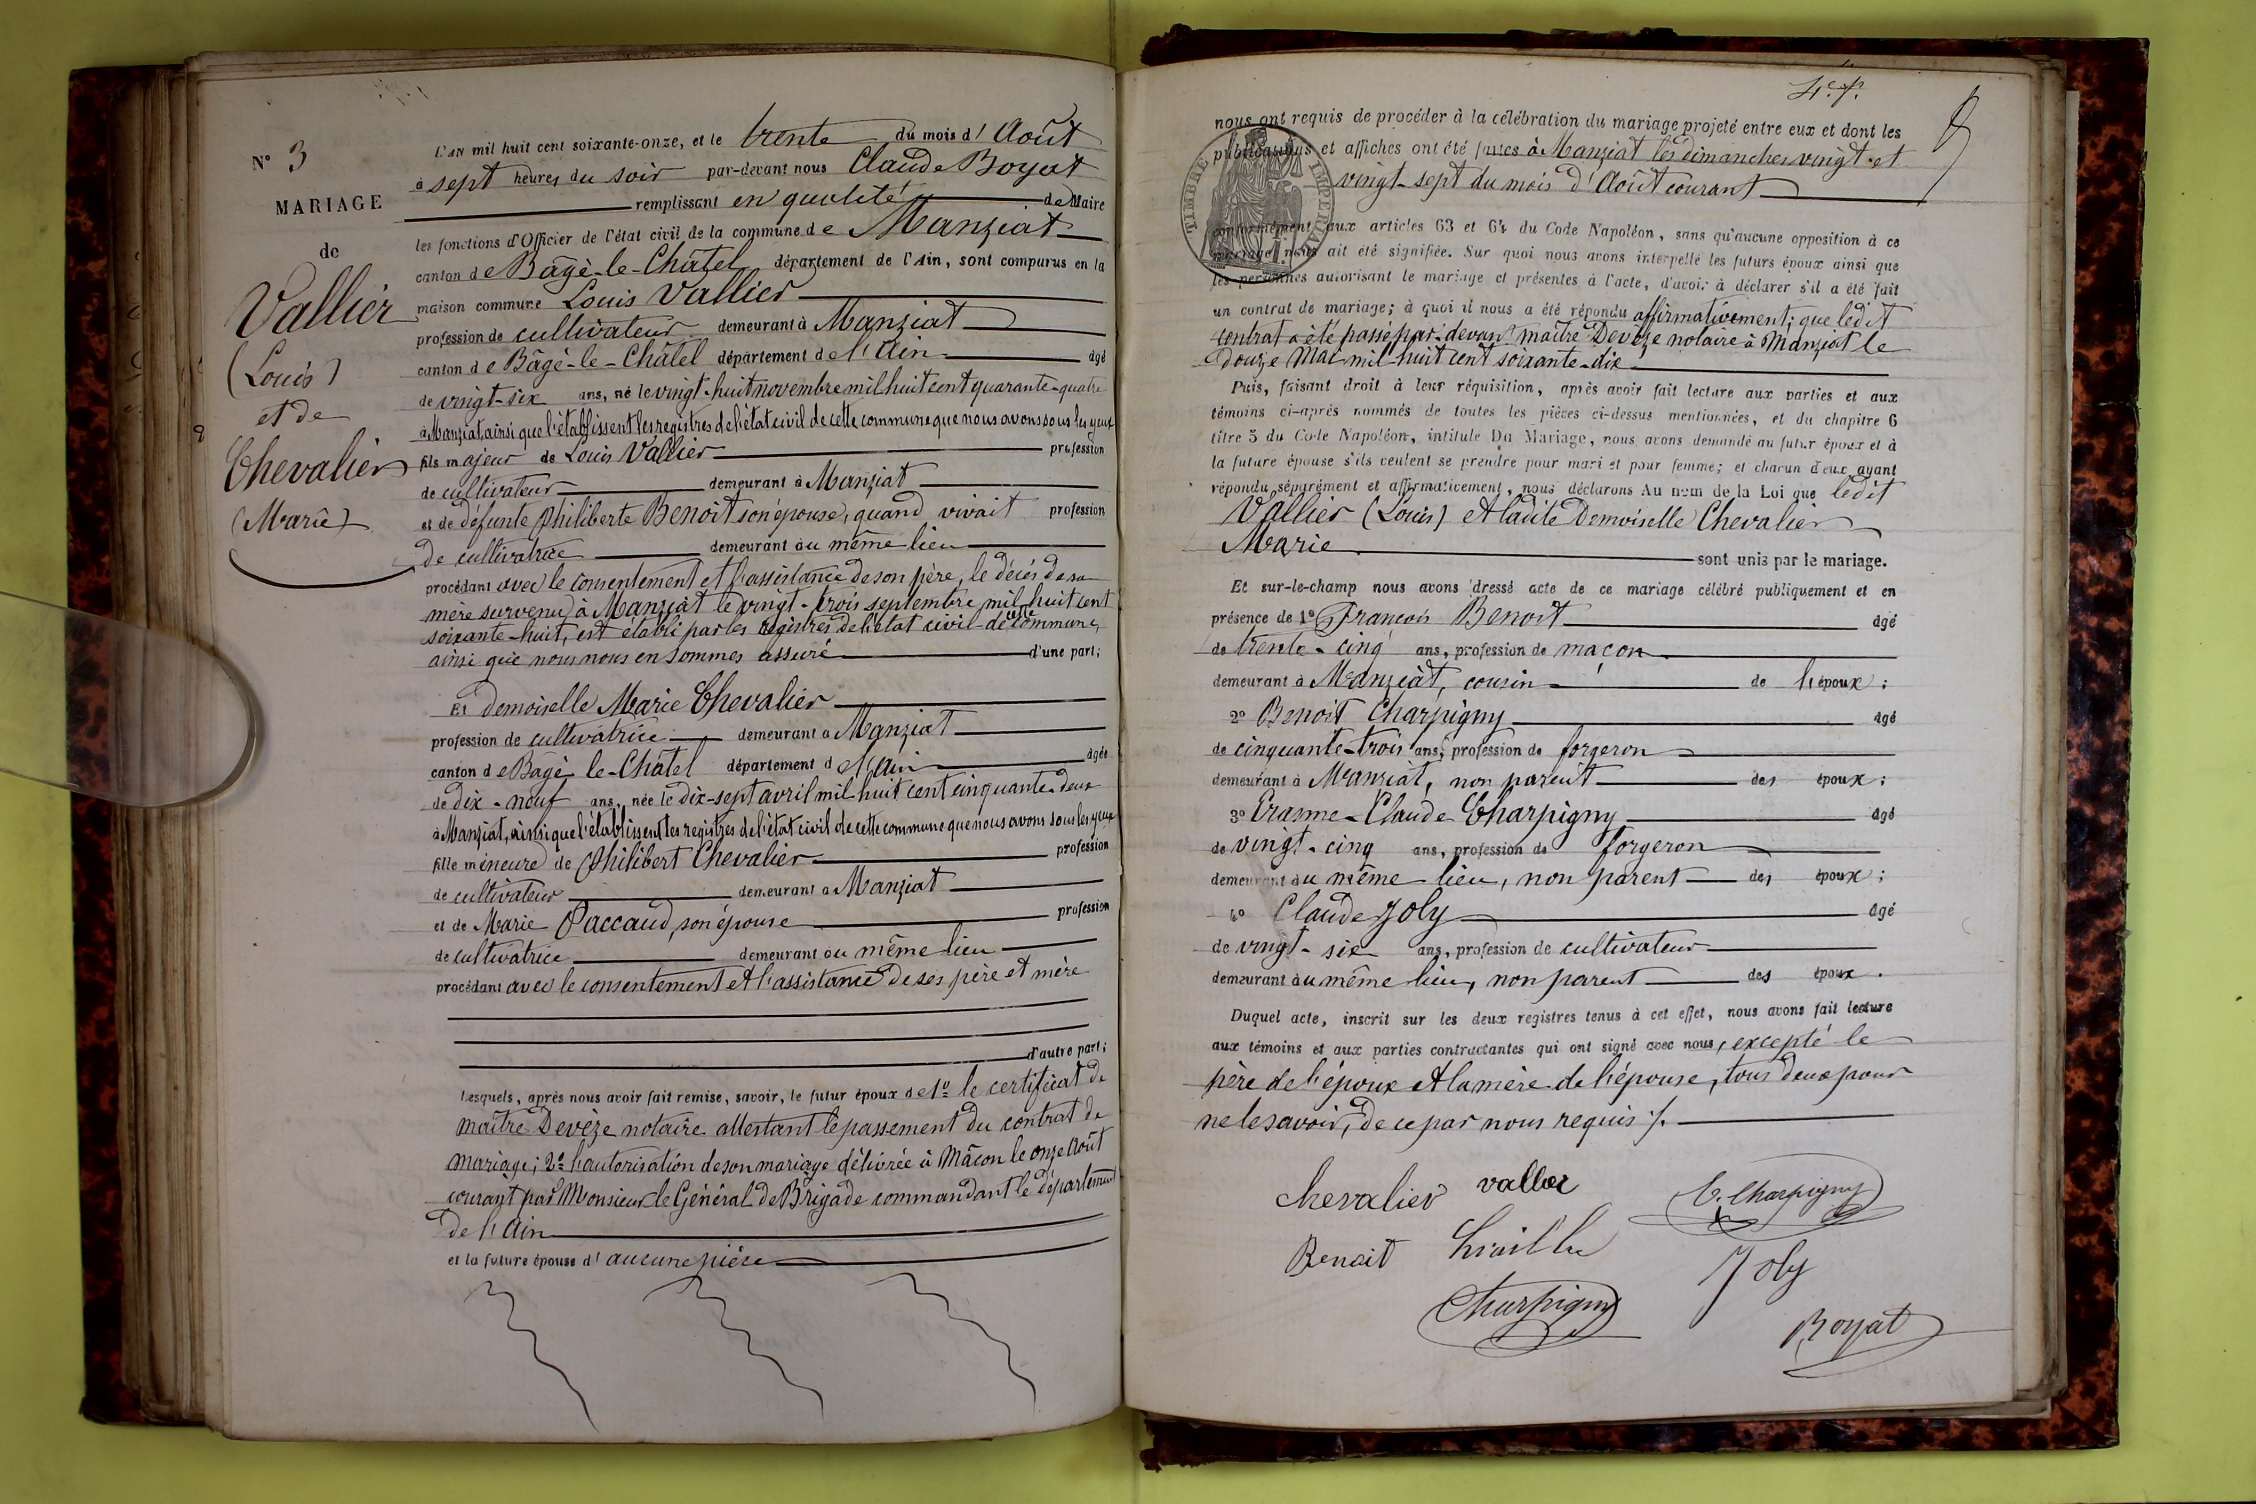 N° 3
MARIAGE
de
Vallier
(Louis)
et de
Chevalier
(Marie)
L'AN mil huit cent soixante-onze, et le trente du mois d' Août
à sept heures du soir par-devant nous Claude Boyat
remplissant en qualité de Maire
les fonctions d'Officier de l'état civil de la commune de Manziat
canton de Bâgé-le-Châtel département de l'Ain, sont comparus en la
maison commune Louis Vallier
profession de cultivateur demeurant à Manziat
canton de Bâgé-le-Châtel département de l'Ain âgé
de vingt-six ans, né le vingt-huit novembre mil huit cent quarante-quatre
à Manziat, ainsi que l'établissent les registres de l'état civil de cette commune que nous avons sous les yeux
fils majeur de Louis Vallier profession
de cultivateur demeurant à Manziat
et de défunte Philiberte Benoit son épouse, quand vivait profession
de cultivatrice demeurant au même lieu
procédant avec le consentement et l'assistance de son père, le décès de sa
mère survenu à Manziat le vingt-trois septembre mil huit cent
soixante-huit, est établi par les registres de l'état civil de cette commune,
ainsi que nous nous en sommes assuré d'une part;
Et demoiselle Marie Chevalier
profession de cultivatrice demeurant à Manziat
canton de Bâgé-le-Châtel département de l'Ain âgée
de dix-neuf ans, née le dix-sept avril mil huit cent cinquante-deux
à Manziat, ainsi que l'établissent les registres de l'état civil de cette commune que nous avons sous les yeux
fille mineure de Philibert Chevalier profession
de cultivateur demeurant à Manziat
et de Marie Paccaud, son épouse profession
de cultivatrice demeurant au même lieu
procédant avec le consentement et l'assistance de ses père et mère
d'autre part;
Lesquels, après nous avoir fait remise, savoir, le futur époux de 1º le certificat de
maître Devèze notaire attestant le passement du contrat de
mariage; 2º l'autorisation de son mariage délivrée à Mâcon le onze Août
courant par Monsieur le Général de Brigade commandant le département
de l'Ain
et la future épouse d' aucune pièce
nous ont requis de procéder à la célébration du mariage projeté entre eux et dont les
publications et affiches ont été faites à Manziat les dimanches vingt et
vingt-sept du mois d'Août courant
TIMBRE IMPERIAL
conformément aux articles 63 et 64 du Code Napoléon, sans qu'aucune opposition à ce
mariage nous ait été signifiée. Sur quoi nous avons interpellé les futurs époux ainsi que
les personnes autorisant le mariage et présentes à l'acte, d'avoir à déclarer s'il a été fait
un contrat de mariage; à quoi il nous a été répondu affirmativement; que ledit
contrat a été passé par-devant maître Devèze notaire à Manziat le
douze Mai mil huit cent soixante-dix
Puis, faisant droit à leur réquisition, après avoir fait lecture aux parties et aux
témoins ci-après nommés de toutes les pièces ci-dessus mentionnées, et du chapitre 6
titre 5 du Code Napoléon, intitulé Du Mariage, nous avons demandé au futur époux et à
la future épouse s'ils veulent se prendre pour mari et pour femme; et chacun d'eux ayant
répondu séparément et affirmativement, nous déclarons Au nom de la Loi que ledit
Vallier (Louis) et ladite Demoiselle Chevalier
Marie sont unis par le mariage.
Et sur-le-champ nous avons dressé acte de ce mariage célébré publiquement et en
présence de 1º François Benoit âgé
de trente-cinq ans, profession de maçon
demeurant à Manziat, cousin de l'époux;
2º Benoit Charpigny âgé
de cinquante-trois ans, profession de forgeron
demeurant à Manziat, non parent des époux;
3º Erasme-Claude Charpigny âgé
de vingt-cinq ans, profession de forgeron
demeurant au même lieu, non parent des époux;
4º Claude Joly âgé
de vingt-six ans, profession de cultivateur
demeurant au même lieu, non parent des époux.
Duquel acte, inscrit sur les deux registres tenus à cet effet, nous avons fait lecture
aux témoins et aux parties contractantes qui ont signé avec nous, excepté le
père de l'époux et la mère de l'épouse, tous deux pour
ne le savoir, de ce par nous requis ./.
Chevalier vallier C. Charpigny
Benoit Joly
Charpigny
Boyat